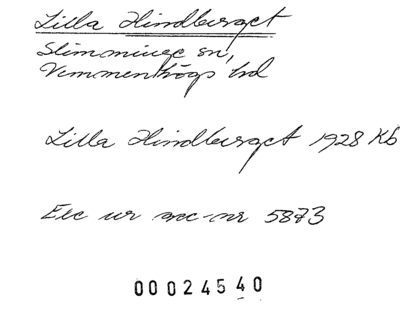 Lilla Hindberget
Slimminge sn,
Vemmenhögs hd
Lilla Hindberget 1928 Kb
Exc ur acc-nr 5873
00024540